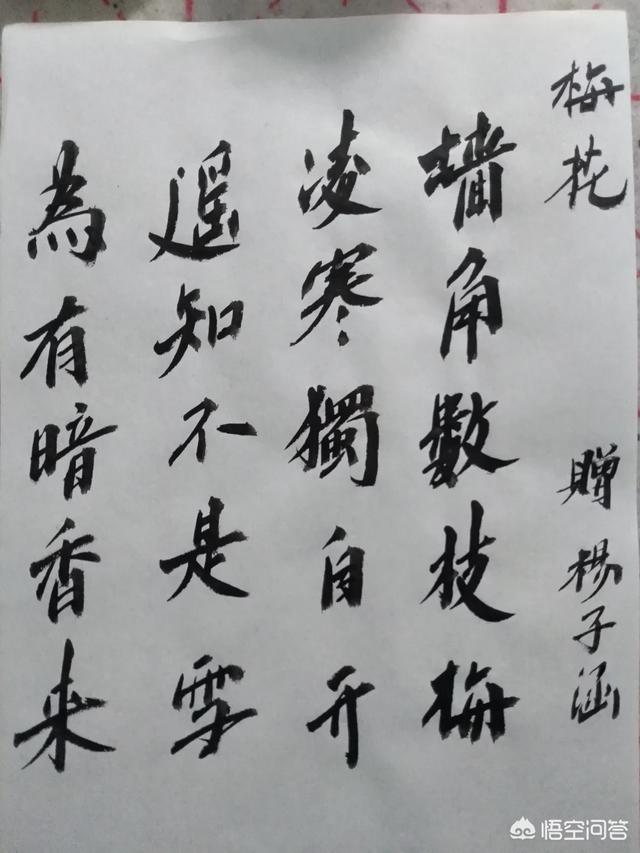 梅花
贈楊子涵
墻角數枝梅
凌寒獨自开
遥知不是雪
為有暗香来
悟空问答